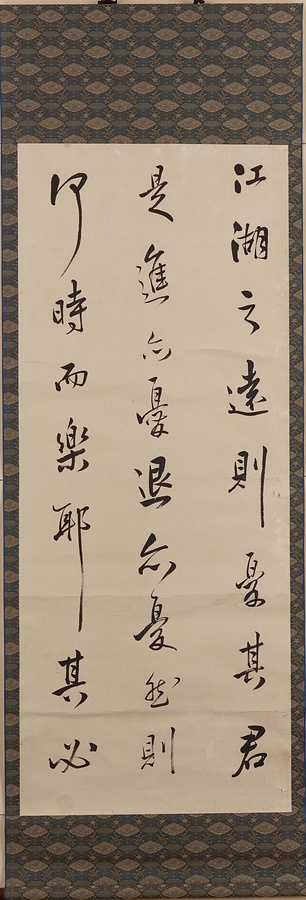 江湖之遠則憂其君
是進亦憂退亦憂然則
何時而樂耶其必